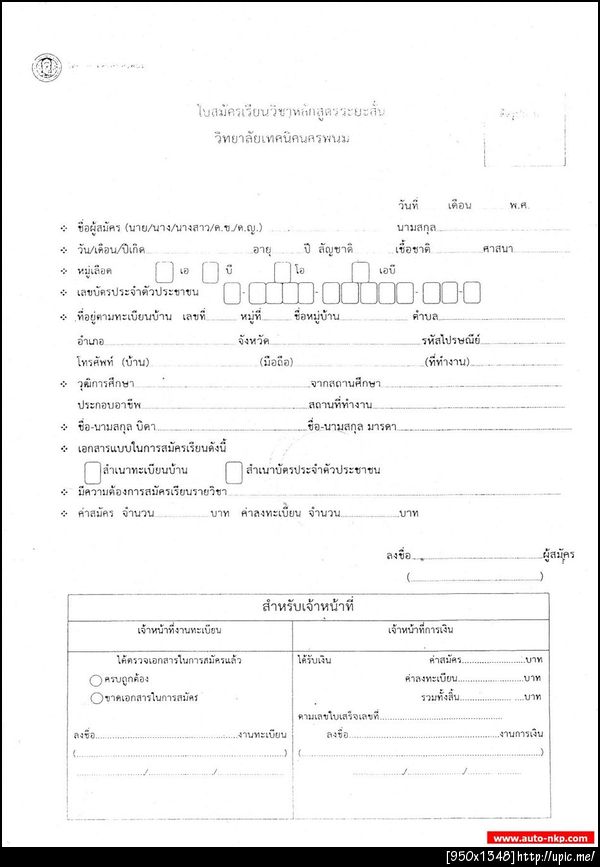 ใบสมัครเรียนวิชาหลักสูตรระยะสั้น
วิทยาลัยเทคนิคนครพนม
วันที่ เดือน พ.ศ.
ชื่อผู้สมัคร (นาย/นาง/นางสาว/ด.ช./ด.ญ.) นามสกุล
วัน/เดือน/ปีเกิด อายุ ปี สัญชาติ เชื้อชาติ ศาสนา
หมู่เลือด เอ บี โอ เอบี
เลขบัตรประจำตัวประชาชน - - - -
ที่อยู่ตามทะเบียนบ้าน เลขที่ หมู่ที่ ชื่อหมู่บ้าน ตำบล
อำเภอ จังหวัด รหัสไปรษณีย์
โทรศัพท์ (บ้าน) (มือถือ) (ที่ทำงาน)
วุฒิการศึกษา จากสถานศึกษา
ประกอบอาชีพ สถานที่ทำงาน
ชื่อ-นามสกุล บิดา ชื่อ-นามสกุล มารดา
เอกสารแนบในการสมัครเรียนดังนี้
สำเนาทะเบียนบ้าน สำเนาบัตรประจำตัวประชาชน
มีความต้องการสมัครเรียนรายวิชา
ค่าสมัคร จำนวน บาท ค่าลงทะเบียน จำนวน บาท
ลงชื่อ ผู้สมัคร
( )
สำหรับเจ้าหน้าที่
เจ้าหน้าที่งานทะเบียน เจ้าหน้าที่การเงิน
ได้ตรวจเอกสารในการสมัครแล้ว ได้รับเงิน ค่าสมัคร บาท
ครบถูกต้อง ค่าลงทะเบียน บาท
ขาดเอกสารในการสมัคร รวมทั้งสิ้น บาท
ตามเลขใบเสร็จเลขที่
ลงชื่อ งานทะเบียน ลงชื่อ งานการเงิน
( ) ( )
/ / / /
www.auto-nkp.com
[950x1348]http://upic.me/